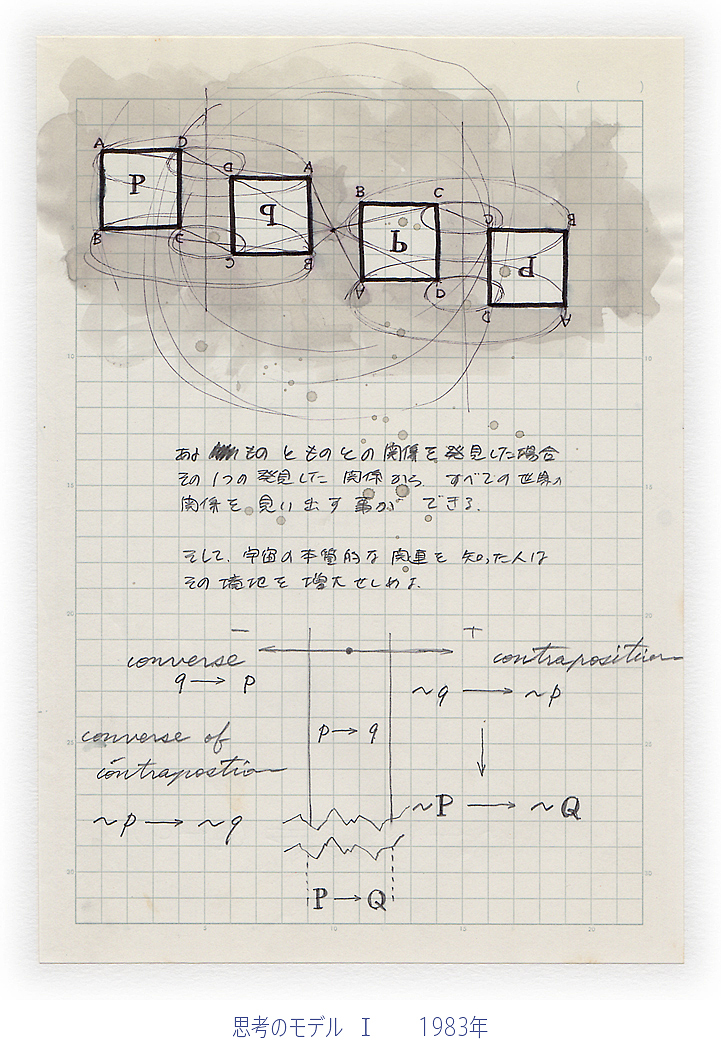 A D D A B C C B
P q b d
B C C B A D D A
ある ものとものとの関係を発見した場合
その1つの発見した関係から すべての世界の
関係を見い出す事ができる.
そして、宇宙の本質的な関連を知った人は
その境地を増大せしめる.
− +
converse contraposition
q → p ~q → ~p
converse of p → q
contrapostion
~p → ~q ~P → ~Q
P → Q
思考のモデル Ⅰ 1983年